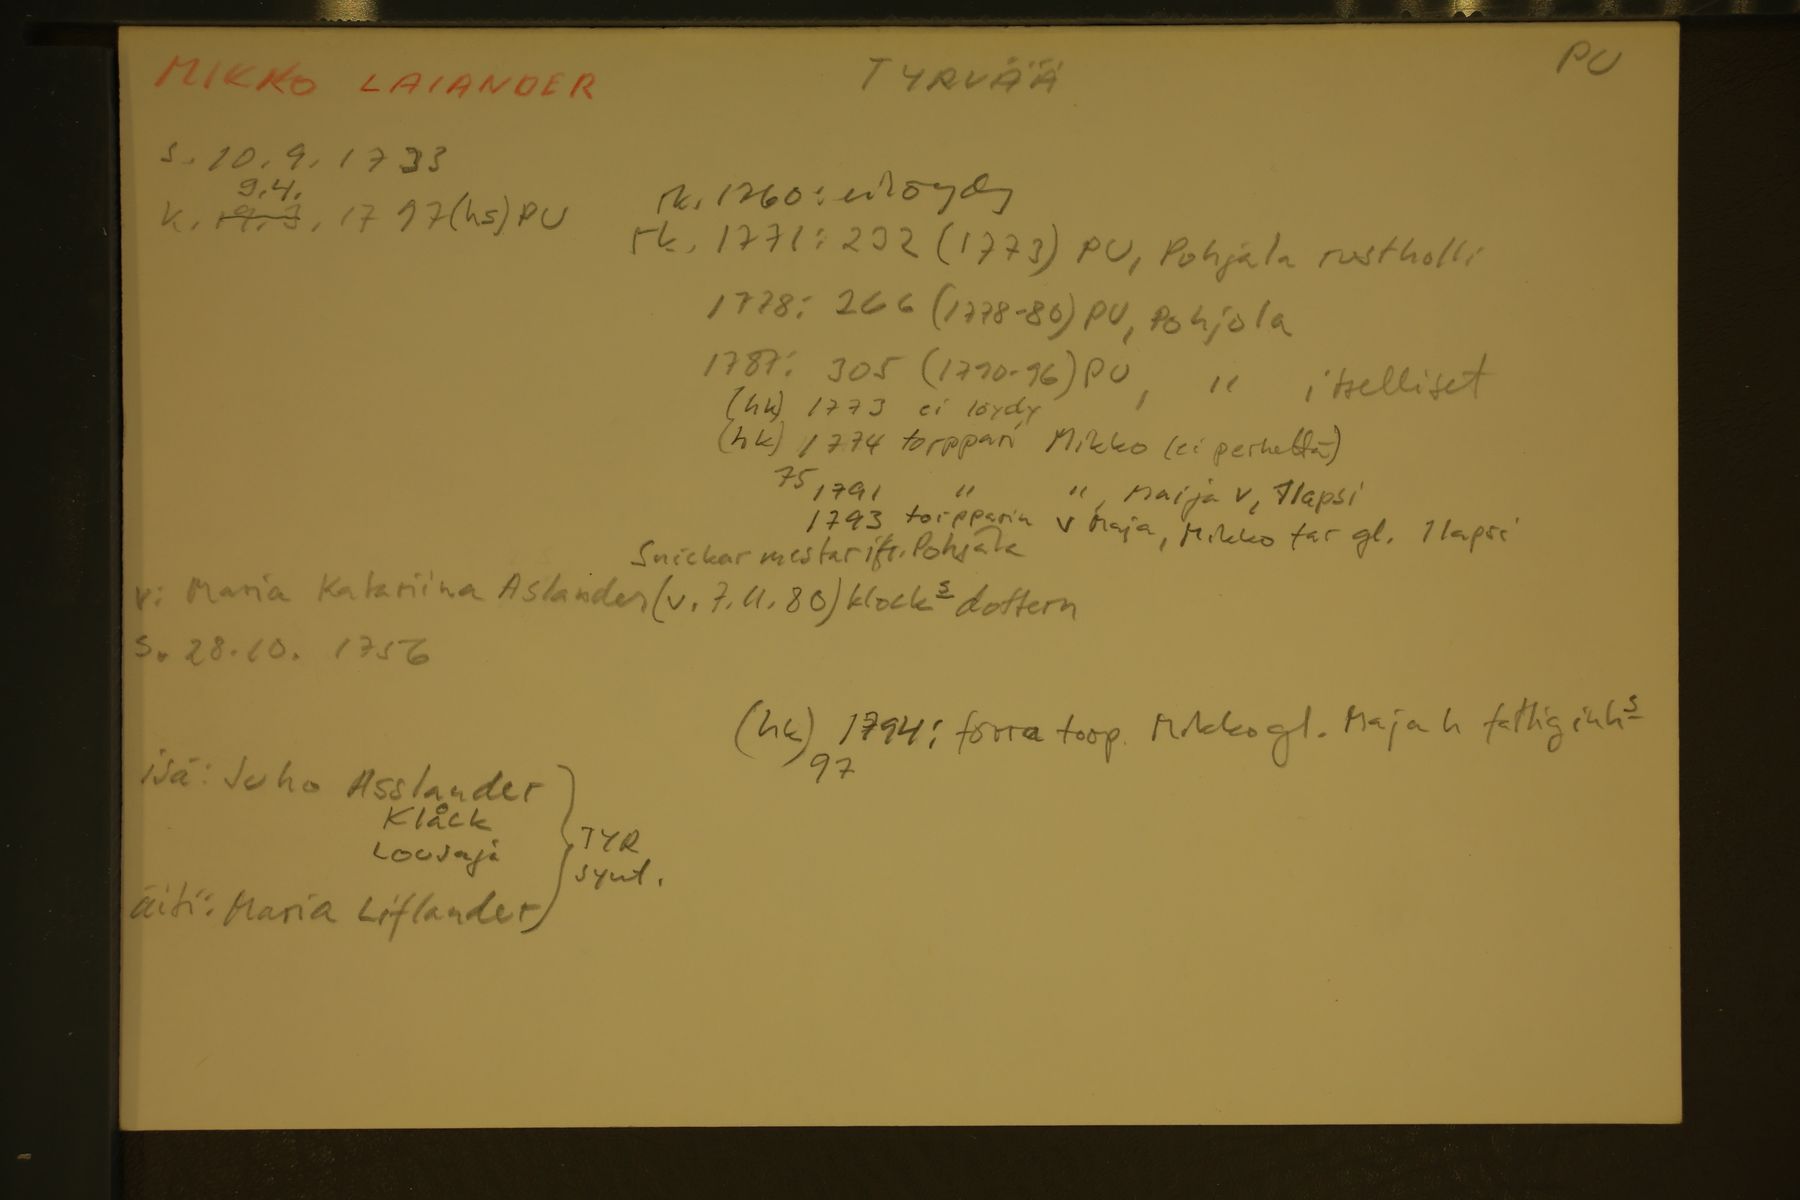 MIKKO LAIANDER TYRVÄÄ PU
s. 10.9.1733
9.4.
k. 19.3. 1797 (hs) PU
rk. 1760: ei löydy
rk. 1771: 232 (1773) PU, Pohjala rustholli
1778: 266 (1778-80) PU, Pohjola
1787: 305 (1790-96) PU, " itselliset
(hk) 1773 ei löydy
(hk) 1774 torppari Mikko (ei perhettä)
75
1791 " ", Maija v, 1 lapsi
1793 torpparin v Maja, Mikko far gl. 1 lapsi
Snickar mestar ifr. Pohjala
v: Maria Katariina Aslander (v. 7.11.80) klocks dottern
s. 28.10. 1756
(hk) 1794: förra torp. Mikko gl. Maja h fattig inhs
97
isä: Juho Asslander
Klåck
äiti: Maria Liflander
TYR
synt.